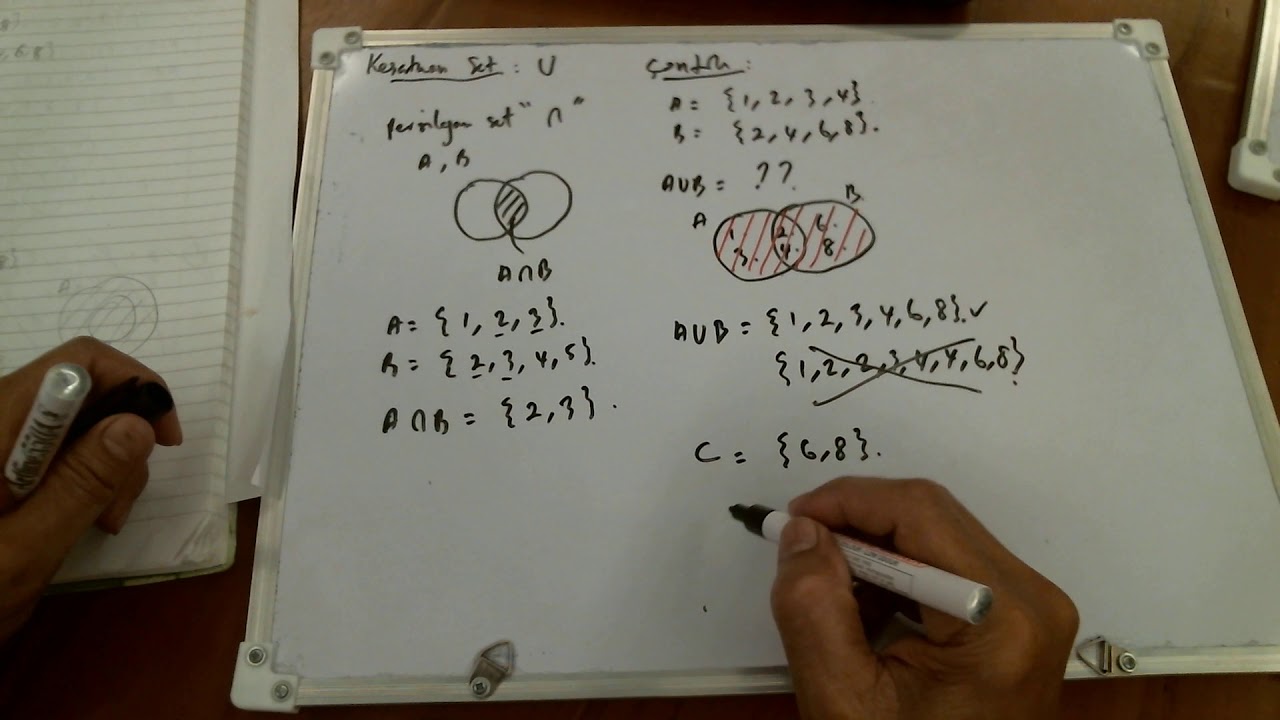 Kesatuan Set : U
persilangan set " ∩ "
A, B
A∩B
A = {1, 2, 3}.
B = {2, 3, 4, 5}.
A∩B = {2, 3}.
Contoh:
A = {1, 2, 3, 4}.
B = {2, 4, 6, 8}.
A∪B = ??
A B
1 2 6
3. 4. 8.
A∪B = {1, 2, 3, 4, 6, 8}.✓
{1, 2, 2, 3, 4, 4, 6, 8}
C = {6, 8}.